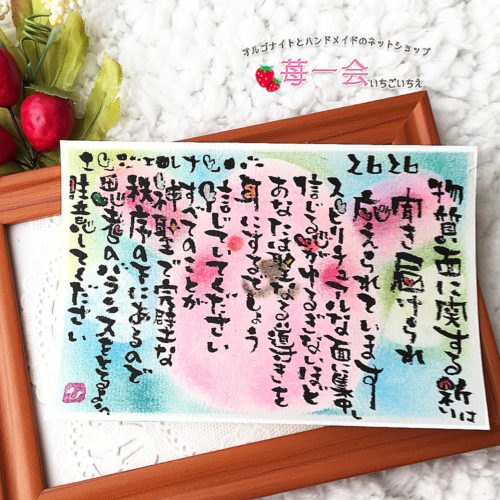 オルゴナイトとハンドメイドのネットショップ
苺一会
いちごいちえ
2626
物質面に関する祈りは
聞き届けられ
応えられています
スピリチュアルな面に集中し
信じる心がゆるぎないほど
あなたは聖なる導きを
耳にするでしょう
信じていてください
すべてのことが
神聖で完璧な
秩序の下にあるので
思考のバランスをとるよう
注意してください
エンジェルナンバー